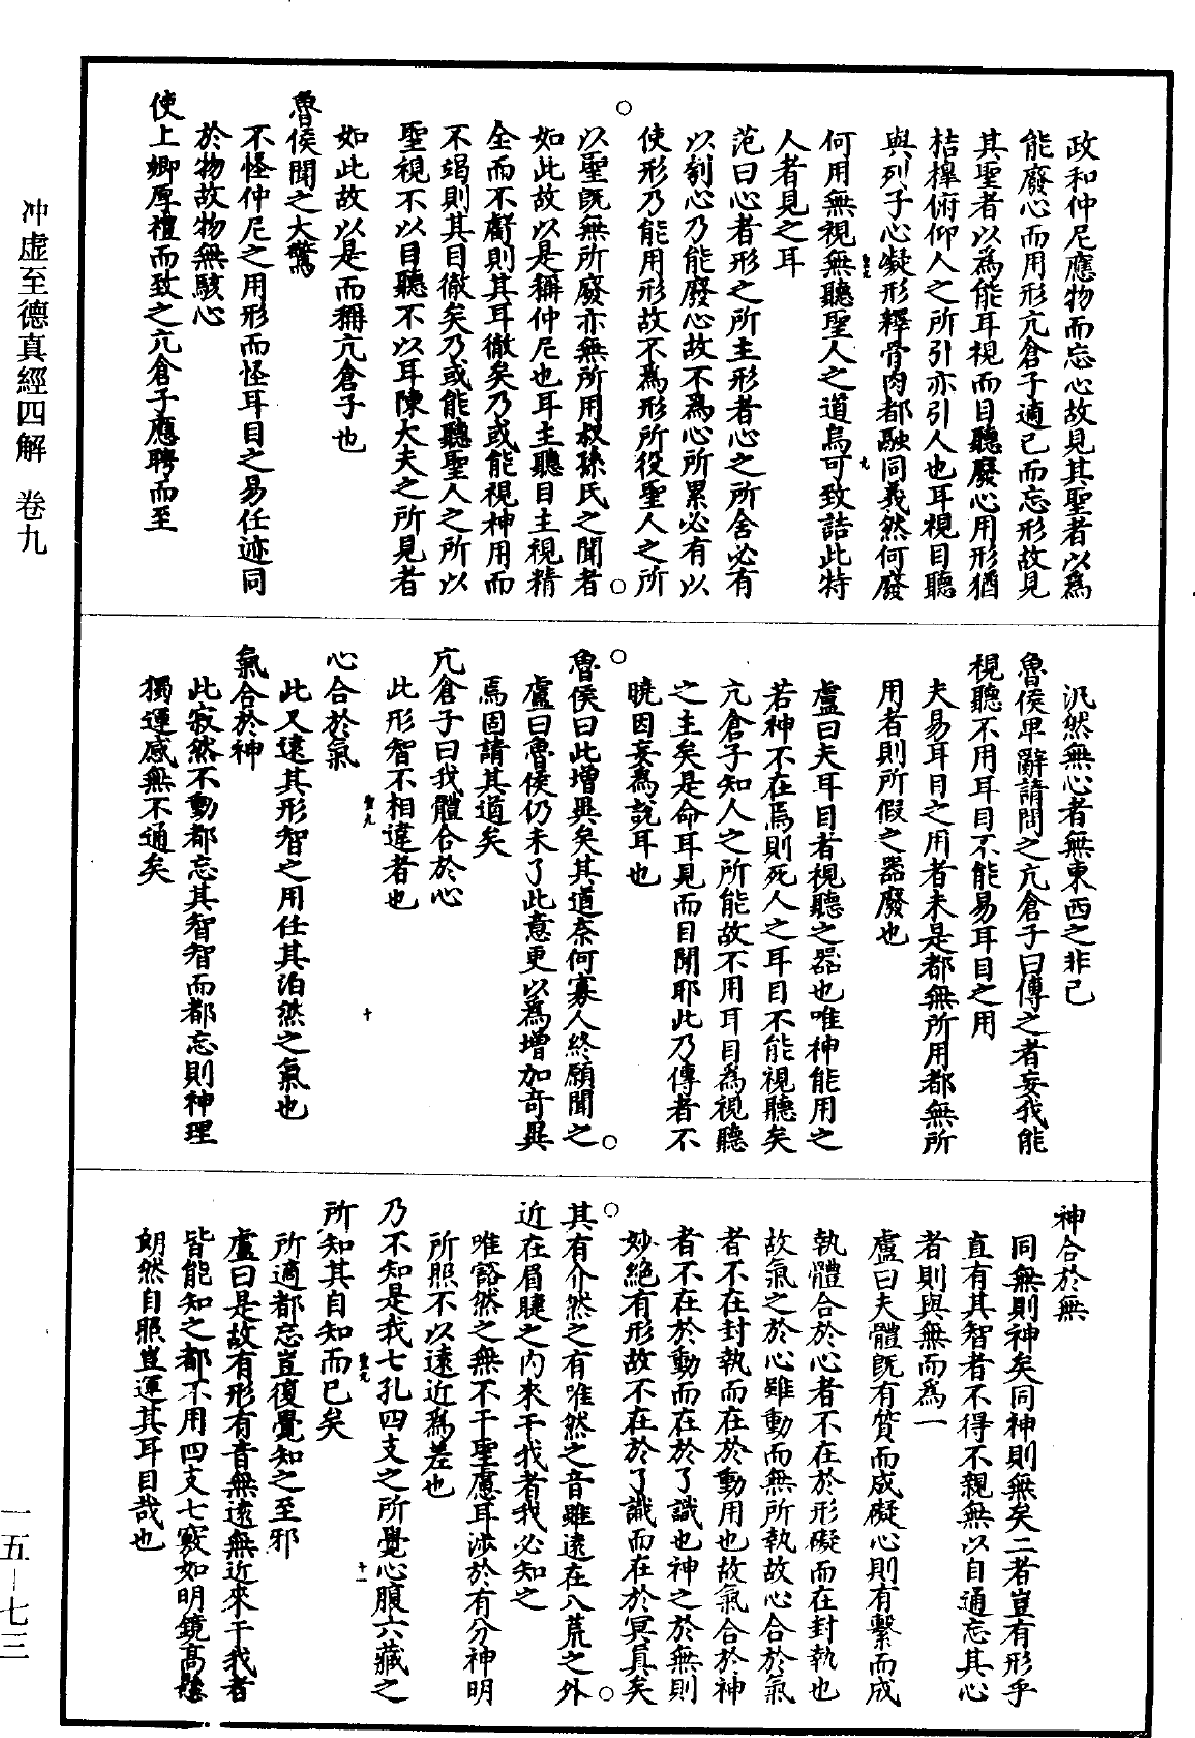 政和仲尼應物而忘心故見其聖者以為
能廢心而用形亢倉子適己而忘形故見
其聖者以為能耳視而目聽廢心用形猶
桔槔俯仰人之所引亦引人也耳視目聽
與列子心凝形釋骨肉都融同義然何廢
何用無視無聽聖人之道烏可致詰此特
人者見之耳
范曰心者形之所主形者心之所舍必有
以刳心乃能廢心故不為心所累必有以
使形乃能用形故不為形所役聖人之所
以聖旣無所廢亦無所用叔孫氏之聞者
如此故以是稱仲尼也耳主聽目主視精
全而不虧則其耳徹矣乃或能視神用而
不竭則其目徹矣乃或能聽聖人之所以
聖視不以目聽不以耳陳大夫之所見者
如此故以是而稱亢倉子也
魯侯聞之大驚
不怪仲尼之用形而怪耳目之易任迹同
於物故物無駭心
使上卿厚禮而致之亢倉子應聘而至
汎然無心者無東西之非己
魯侯卑辭請問之亢倉子曰傳之者妄我能
視聽不用耳目不能易耳目之用
夫易耳目之用者未是都無所用都無所
用者則所假之器廢也
盧曰夫耳目者視聽之器也唯神能用之
若神不在焉則死人之耳目不能視聽矣
亢倉子知人之所能故不用耳目為視聽
之主矣是命耳見而目聞耶此乃傳者不
曉因妄為說耳也
魯侯曰此增異矣其道奈何寡人終願聞之
盧曰魯侯仍未了此意更以為增加奇異
焉固請其道矣
亢倉子曰我體合於心
此形智不相違者也
心合於氣
此又遠其形智之用任其泊然之氣也
氣合於神
此寂然不動都忘其智智而都忘則神理
獨運感無不通矣
神合於無
同無則神矣同神則無矣二者豈有形乎
直有其智者不得不親無以自通忘其心
者則與無而為一
盧曰夫體旣有質而成礙心則有繫而成
執體合於心者不在於形礙而在封執也
故氣之於心雖動而無所執故心合於氣
者不在封執而在於動用也故氣合於神
者不在於動而在於了識也神之於無則
妙絕有形故不在於了識而在於冥真矣
其有介然之有唯然之音雖遠在八荒之外
近在眉睫之內來干我者我必知之
唯豁然之無不干聖慮耳涉於有分神明
所照不以遠近為差也
乃不知是我七孔四支之所覺心腹六藏之
所知其自知而已矣
所適都忘豈復覺知之至邪
盧曰是故有形有音無遠無近來干我者
皆能知之都不用四支七竅如明鏡高懸
朗然自照豈運其耳目哉也
冲虛至德真經四解 卷九
一五—七三